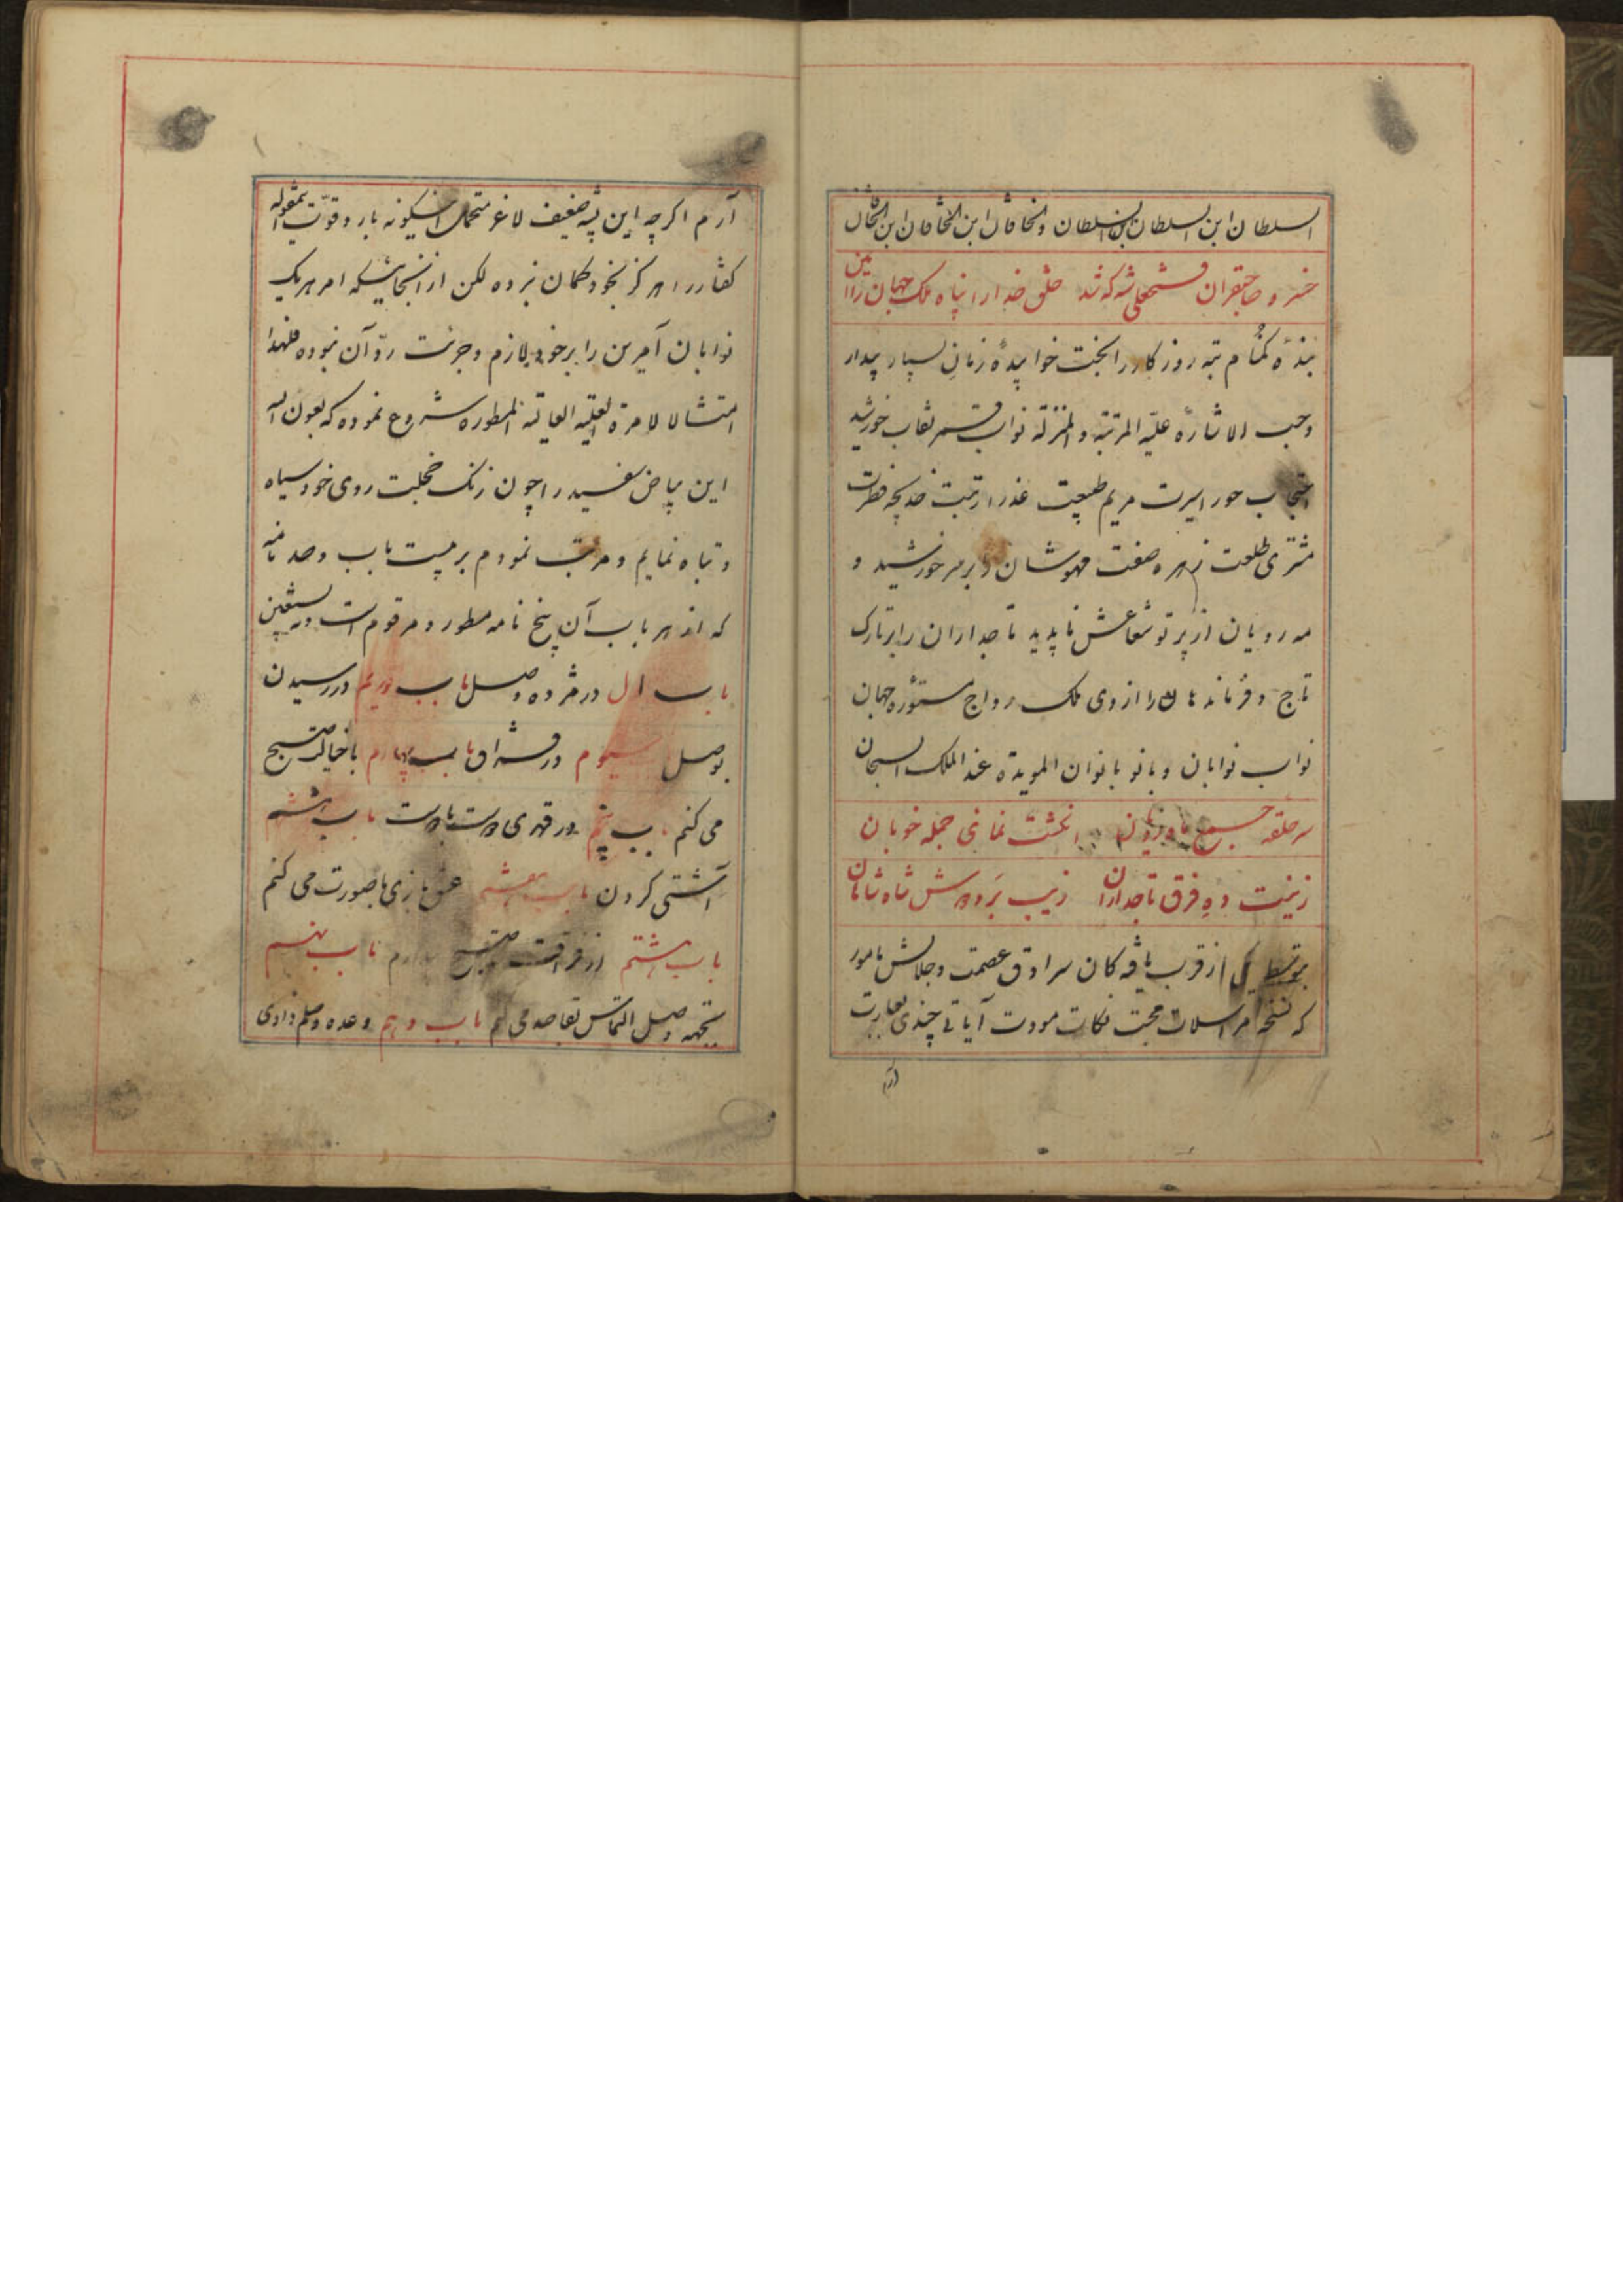 السلطان ابن السلطان ابن السلطان و الخاقان ابن الخاقان ابن الخاقان
خسرو صاحبقران فتحعلی شه که شد خلق خدا را پناه ملک جهان را امین
بنده کمنام تبه روزکار را بخت خوابیده زمان بسیار بیدار
و حسب الاشاره علیّة المرتبة و المنزلة نواب قمر نقاب خورشید
احتجاب حورا سیرت مریم طبیعت عذرا رتبت خدیجه فطرت
مشتری طلعت زهره صفت مهوشان را بر سر خورشید و
مه رویان از پرتو شعاعش ناپدید تاجداران را بر تارک
تاج و فرماندهان را از وی ملک رواج ستوره جهان
نواب نوابان و بانو بانوان المویدة عند الملک السبحان
سر حلقه جمع انکشت نمای جمله خوبان
زینت ده فرق تاجداران زیب بر و دوش شاه شاهان
بتوسط یکی از قرب یافه کان سرادق عصمت و جلالش مامور
که نسخه مراسلات محبت نکات مودت آیاتی چندی بعبارت
آرم
آرم اکرچه این پشه ضعیف لاغر متحمل اینکونه بار و قوّت
کفتار را هرکز بخود کمان نبرده لکن از آنجائیکه امر هر یک
نوابان آمرین را بر خود لازم و جرئت ردّ آن نبوده فلهذا
امتثالا لامرة العلیه العالیه المسطوره شروع نموده که بعون اله
این بیاض سفید را چون زنک خجلت روی خود سیاه
و تباه نمایم و مرتب نمودم بر بیست باب و صد نامه
که از هر باب آن پنج نامه مسطور و مرقوم است و به نستعین
باب اول در مژده وصل باب دویم در رسیدن
بوصل سیوم در فراق باب چهارم با خیالت صبح
می کنم باب پنجم در قهری دوست با دوست باب ششم
آشتی کردن باب هفتم عشق بازی با صورت می کنم
باب هشتم از فراقت صبح باب نهم
بجهه وصل التماس بقاصد می کنم باب دهم وعده وصلم دادی